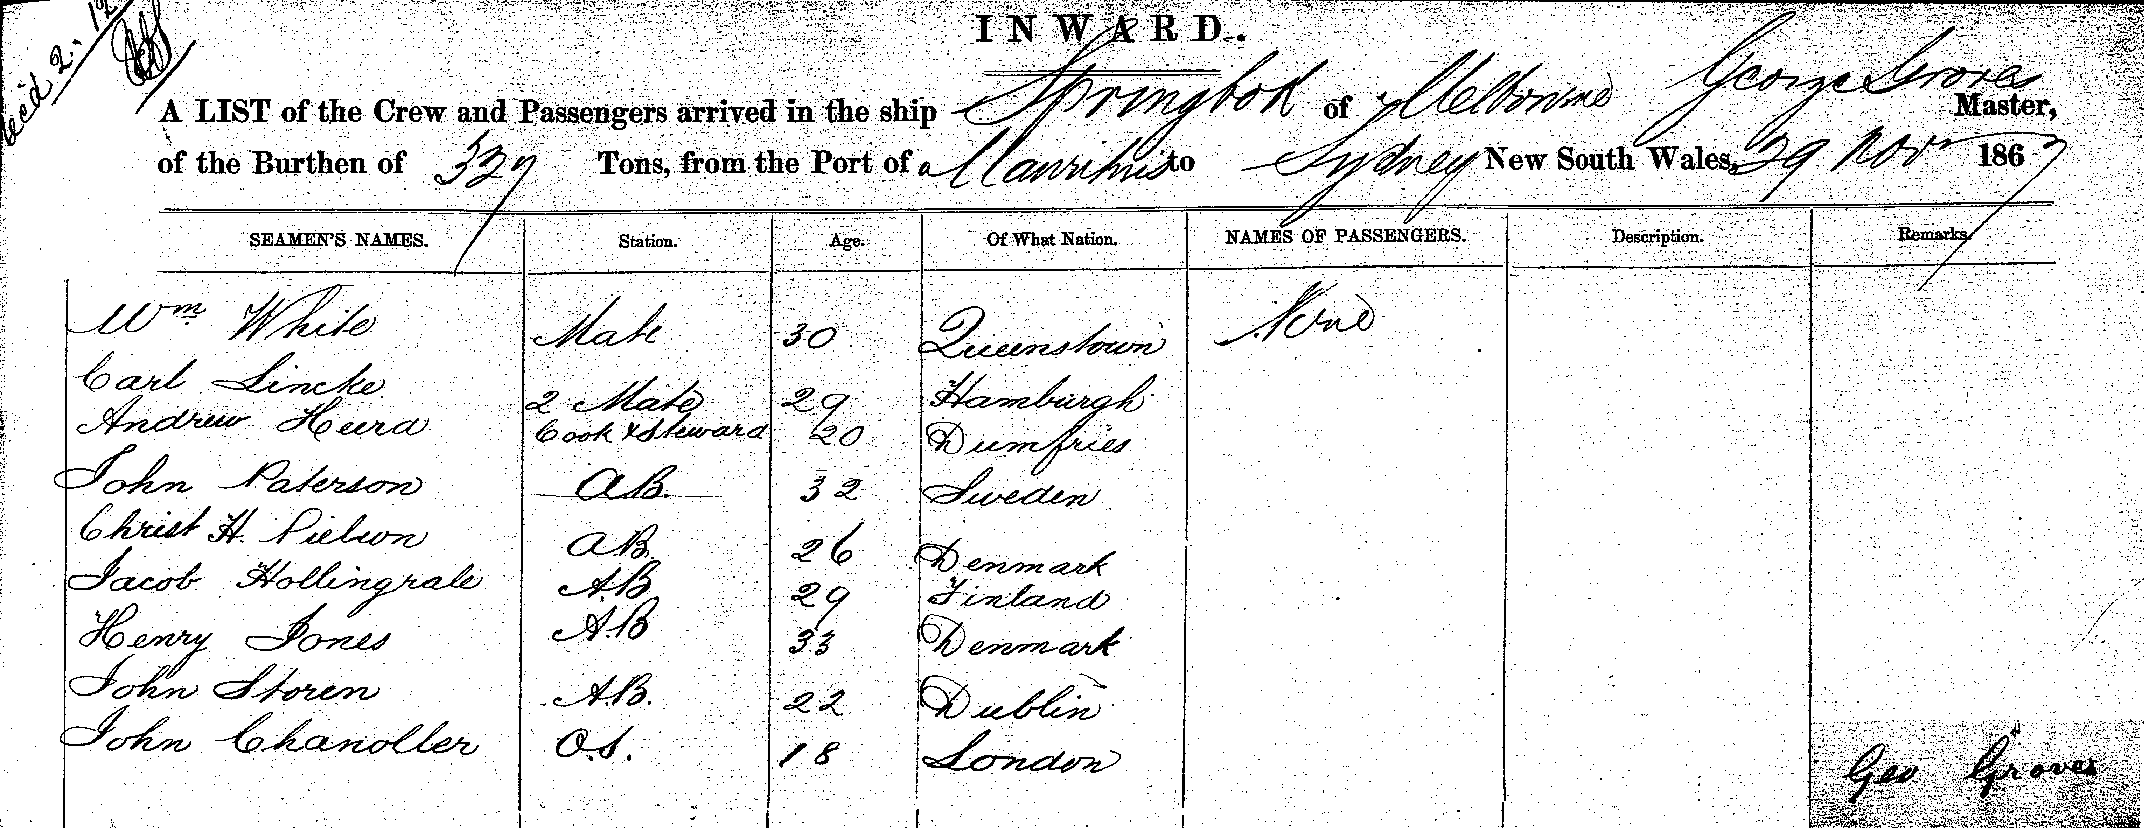 recd 2. 12
INWARD.
A LIST of the Crew and Passengers arrived in the ship Springbok of Melbourne George Groves Master,
of the Burthen of 337 Tons, from the Port of Mauritius to Sydney New South Wales, 29 Novr 1867
SEAMEN'S NAMES. Station. Age. Of What Nation. NAMES OF PASSENGERS. Description. Remarks.
Wm White Mate 30 Queenstown None
Carl Lincke 2 Mate 29 Hamburgh
Andrew Heird Cook & Steward 20 Dumfries
John Paterson AB. 32 Sweden
Christ H. Pielson AB. 26 Denmark
Jacob Hollingrale A.B 29 Finland
Henry Jones A.B 33 Denmark
John Storen A.B. 22 Dublin
John Chandler O.S. 18 London
Geo Groves